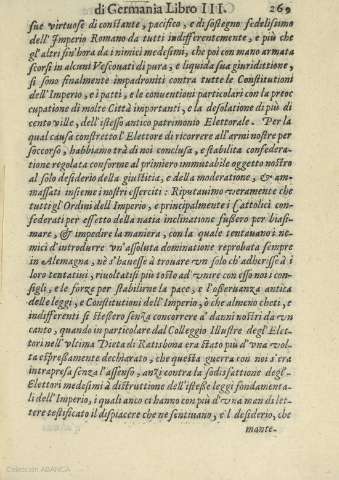 di Germania Libro III. 269
sue virtuose di constante, pacifico, e di sostegno fedelissimo
dell'Imperio Romano da tutti indifferentemente, e più che
gl'altri sin'hora da i nimici medesimi, che poi con mano armata
scorsi in alcuni Vescouati di pura, e liquida sua giuridittione,
si sono finalmente impadroniti contra tutte le Constitutioni
dell'Imperio, e i patti, e le conuentioni particolari con la preoc
cupatione di molte Città importanti, e la desolatione di più di
cento ville, dell'istesso antico patrimonio Elettorale. Per la
qual causa constretto l'Elettore di ricorrere all'armi nostre per
soccorso, habbiamo trà di noi conclusa, e stabilita confede-
ratione regolata conforme al primiero immutabile oggetto nostro
al solo desiderio della giustitia, e della moderatione, & am-
massati insieme i nostri esserciti: Riputauimo veramente che
tutti gl'Ordini dell'Imperio, e principalmente i Cattolici con-
federati per effetto della natia inclinatione fussero per biasi-
mare, & impedire la maniera, con la quale tentauano i ne-
mici d'introdurre vn'assoluta dominatione reprobata sempre
in Alemagna, nè d'hauesse à trouare vn solo ch'adherisse à i
loro tentatiui, riuoltatisi più tosto ad'vnire con esso noi i con-
sigli, e le forze per stabilirne la pace, e l'osseruanza antica
delle leggi, e Constitutioni dell'Imperio, ò che almeno cheti, e
indifferenti si stessero senza concorrere à danni nostri da vn
canto, quando in particolare dal Colleggio Illustre degl'Elet-
tori nell'vltima Dieta di Ratisbona era stato più d'vna vol-
ta espressamente dechiarato, che questa guerra con noi s'era
intrapresa senza l'assenso, anzi contra la sodisfattione degl'-
Elettori medesimi à distruttione dell'istesse leggi fondamenta-
li dell'Imperio, i quali anco ci hanno con più d'vna man di let-
tere testificato il dispiacere che ne sentiuano, e l desiderio, che
mante-
Colección ABANCA